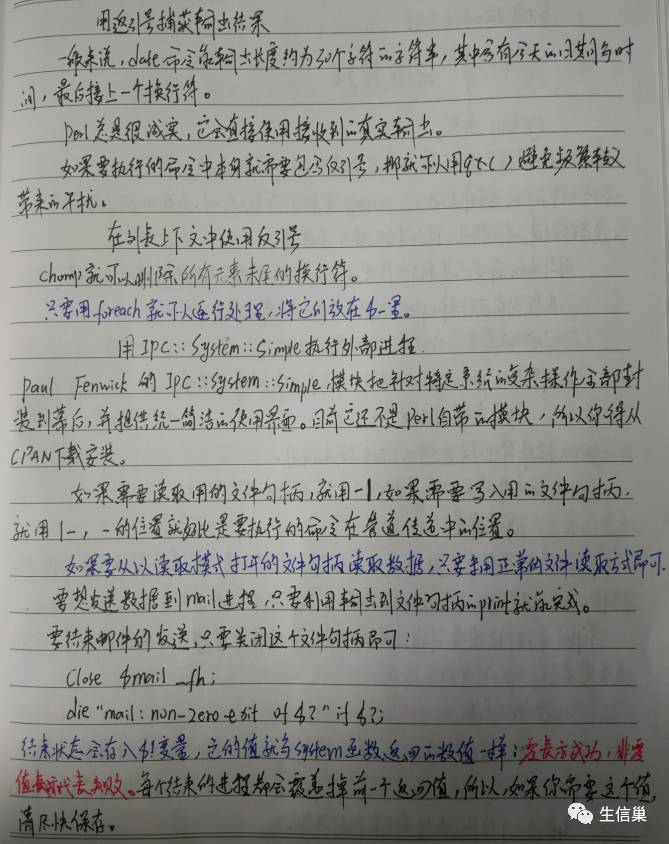 用反引号捕获输出结果
一般来说，date命令能输出长度约为30个字符的字符串，其中含有今天的日期与时
间，最后接上一个换行符。
Perl总是很诚实，它会直接使用接收到的真实输出。
如果要执行的命令中本身就需要包含反引号，那就可以用qx( )避免
带来的干扰。
在列表上下文中使用反引号
chomp就可以删除所有元素末尾的换行符。
只要用foreach就可以逐行处理，将它们放在
用IPC::System::Simple执行外部进程.
Paul Fenwick的IPC::System::Simple模块把针对特定系统的复杂操作全部封
装到幕后，并提供统一简洁的使用界面。目前它还不是Perl自带的模块，所以你得从
CPAN下载安装。
如果需要读取用的文件句柄，就用-|，如果需要写入用的文件句柄，
就用|-，-的位置就好比是要执行的命令在管道传送中的位置。
如果要从以读取模式打开的文件句柄读取数据，只要采用正常的文件读取方式即可.
要想发送数据到mail进程，只要利用输出到文件句柄的print就能完成。
要结束邮件的发送，只要关闭这个文件句柄即可：
Close $mail_fh;
die "mail: non-zero exit of $?" if $?;
结束状态会存入$!变量，它的值就与system函数返回的数值一样：零表示成功，非零
值表示代表失败。每个结束的进程都会覆盖掉前一个返回值，所以，如果你需要这个值，
请尽快保存。
生信巢